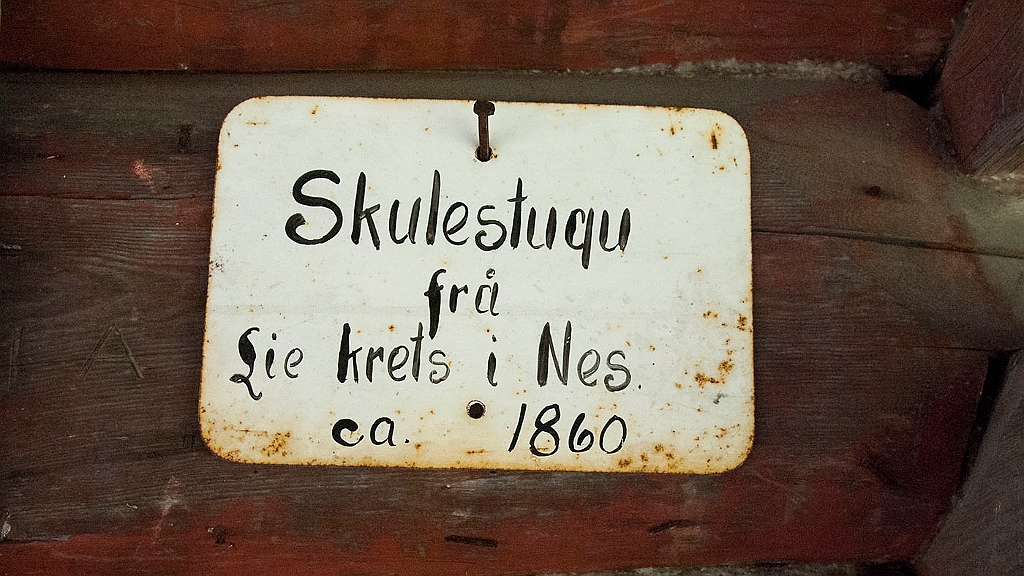 Skulestugu
frå
Lie krets i Nes.
ca. 1860